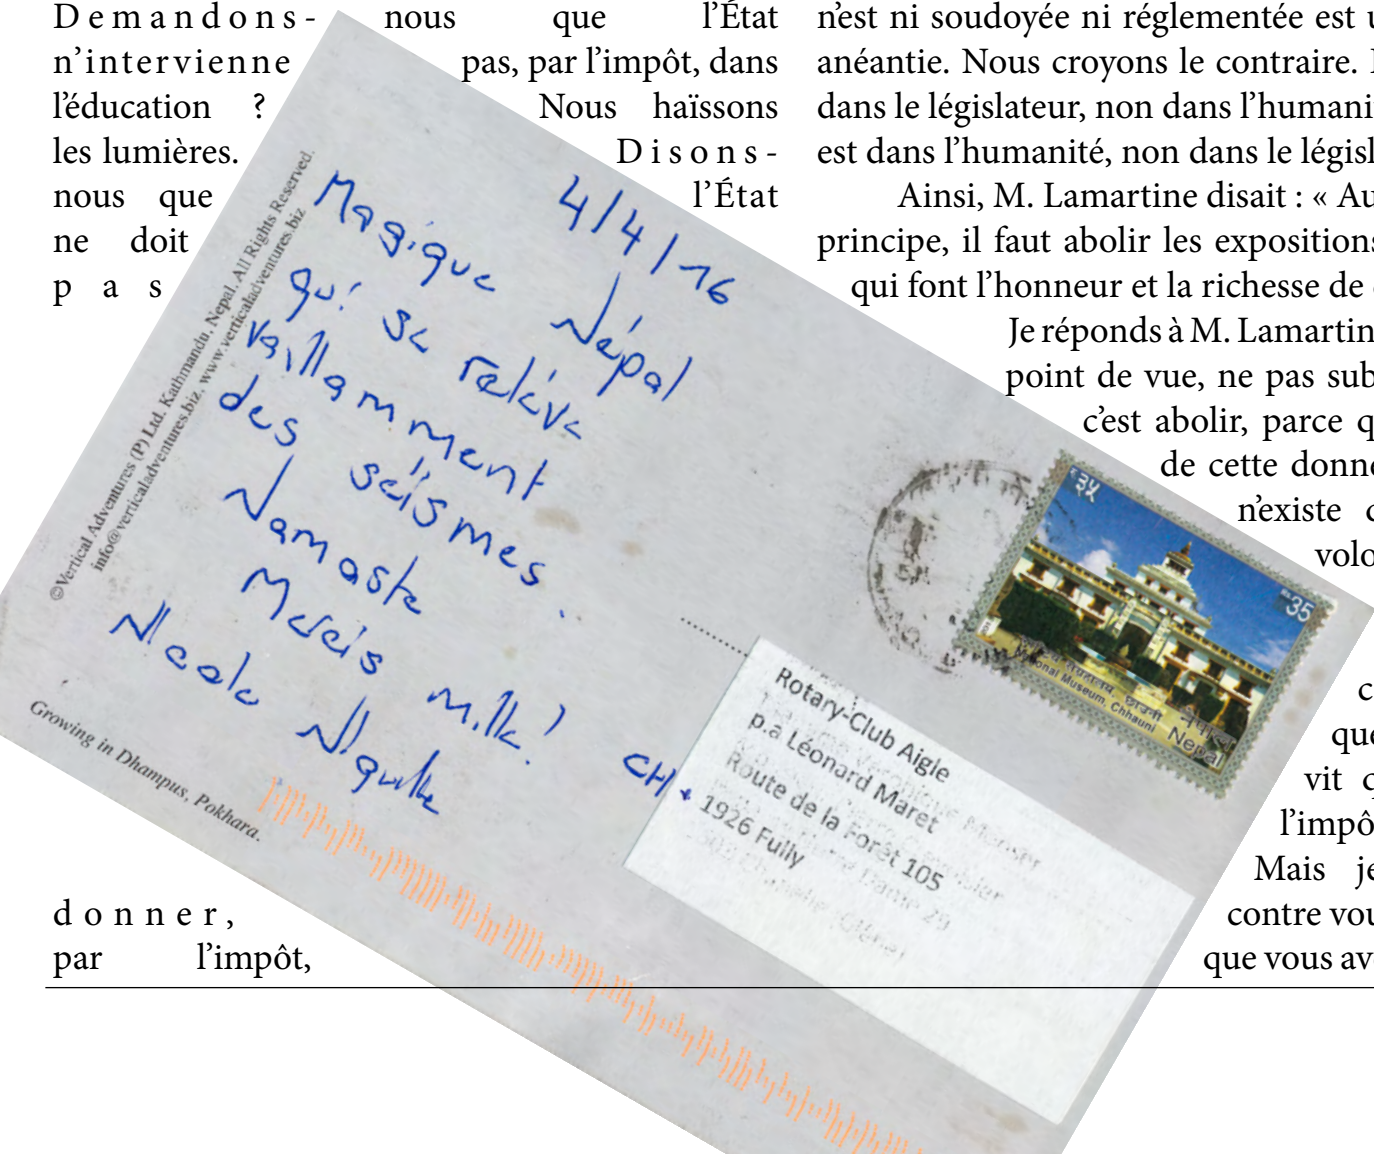 Demandons-nous que l'État
n'intervienne pas, par l'impôt, dans
l'éducation ? Nous haïssons
les lumières. Disons-
nous que l'État
ne doit
pas
donner,
par l'impôt,
n'est ni soudoyée ni réglementée est
anéantie. Nous croyons le contraire.
dans le législateur, non dans l'humanit
est dans l'humanité, non dans le législ
Ainsi, M. Lamartine disait : « Au
principe, il faut abolir les expositions
qui font l'honneur et la richesse de
Je réponds à M. Lamartin
point de vue, ne pas sub
c'est abolir, parce q
de cette donn
n'existe
volo
c
que
vit q
l'impô
Mais je
contre vou
que vous av
©Vertical Adventures (P) Ltd. Kathmandu, Nepal. All Rights Reserved.
info@verticaladventures.biz, www.verticaladventures.biz
4/4/16
Magique Népal
qui se relève
vaillamment
des séismes.
Namaste
Mercis milk!
Nicole Niquille
Growing in Dhampus, Pokhara.
CH
Rotary-Club Aigle
p.a Léonard Maret
Route de la Forêt 105
1926 Fully
३५
Rs. 35
राष्ट्रिय संग्रहालय, छाउनी
National Museum, Chhauni
नेपाल
Nepal